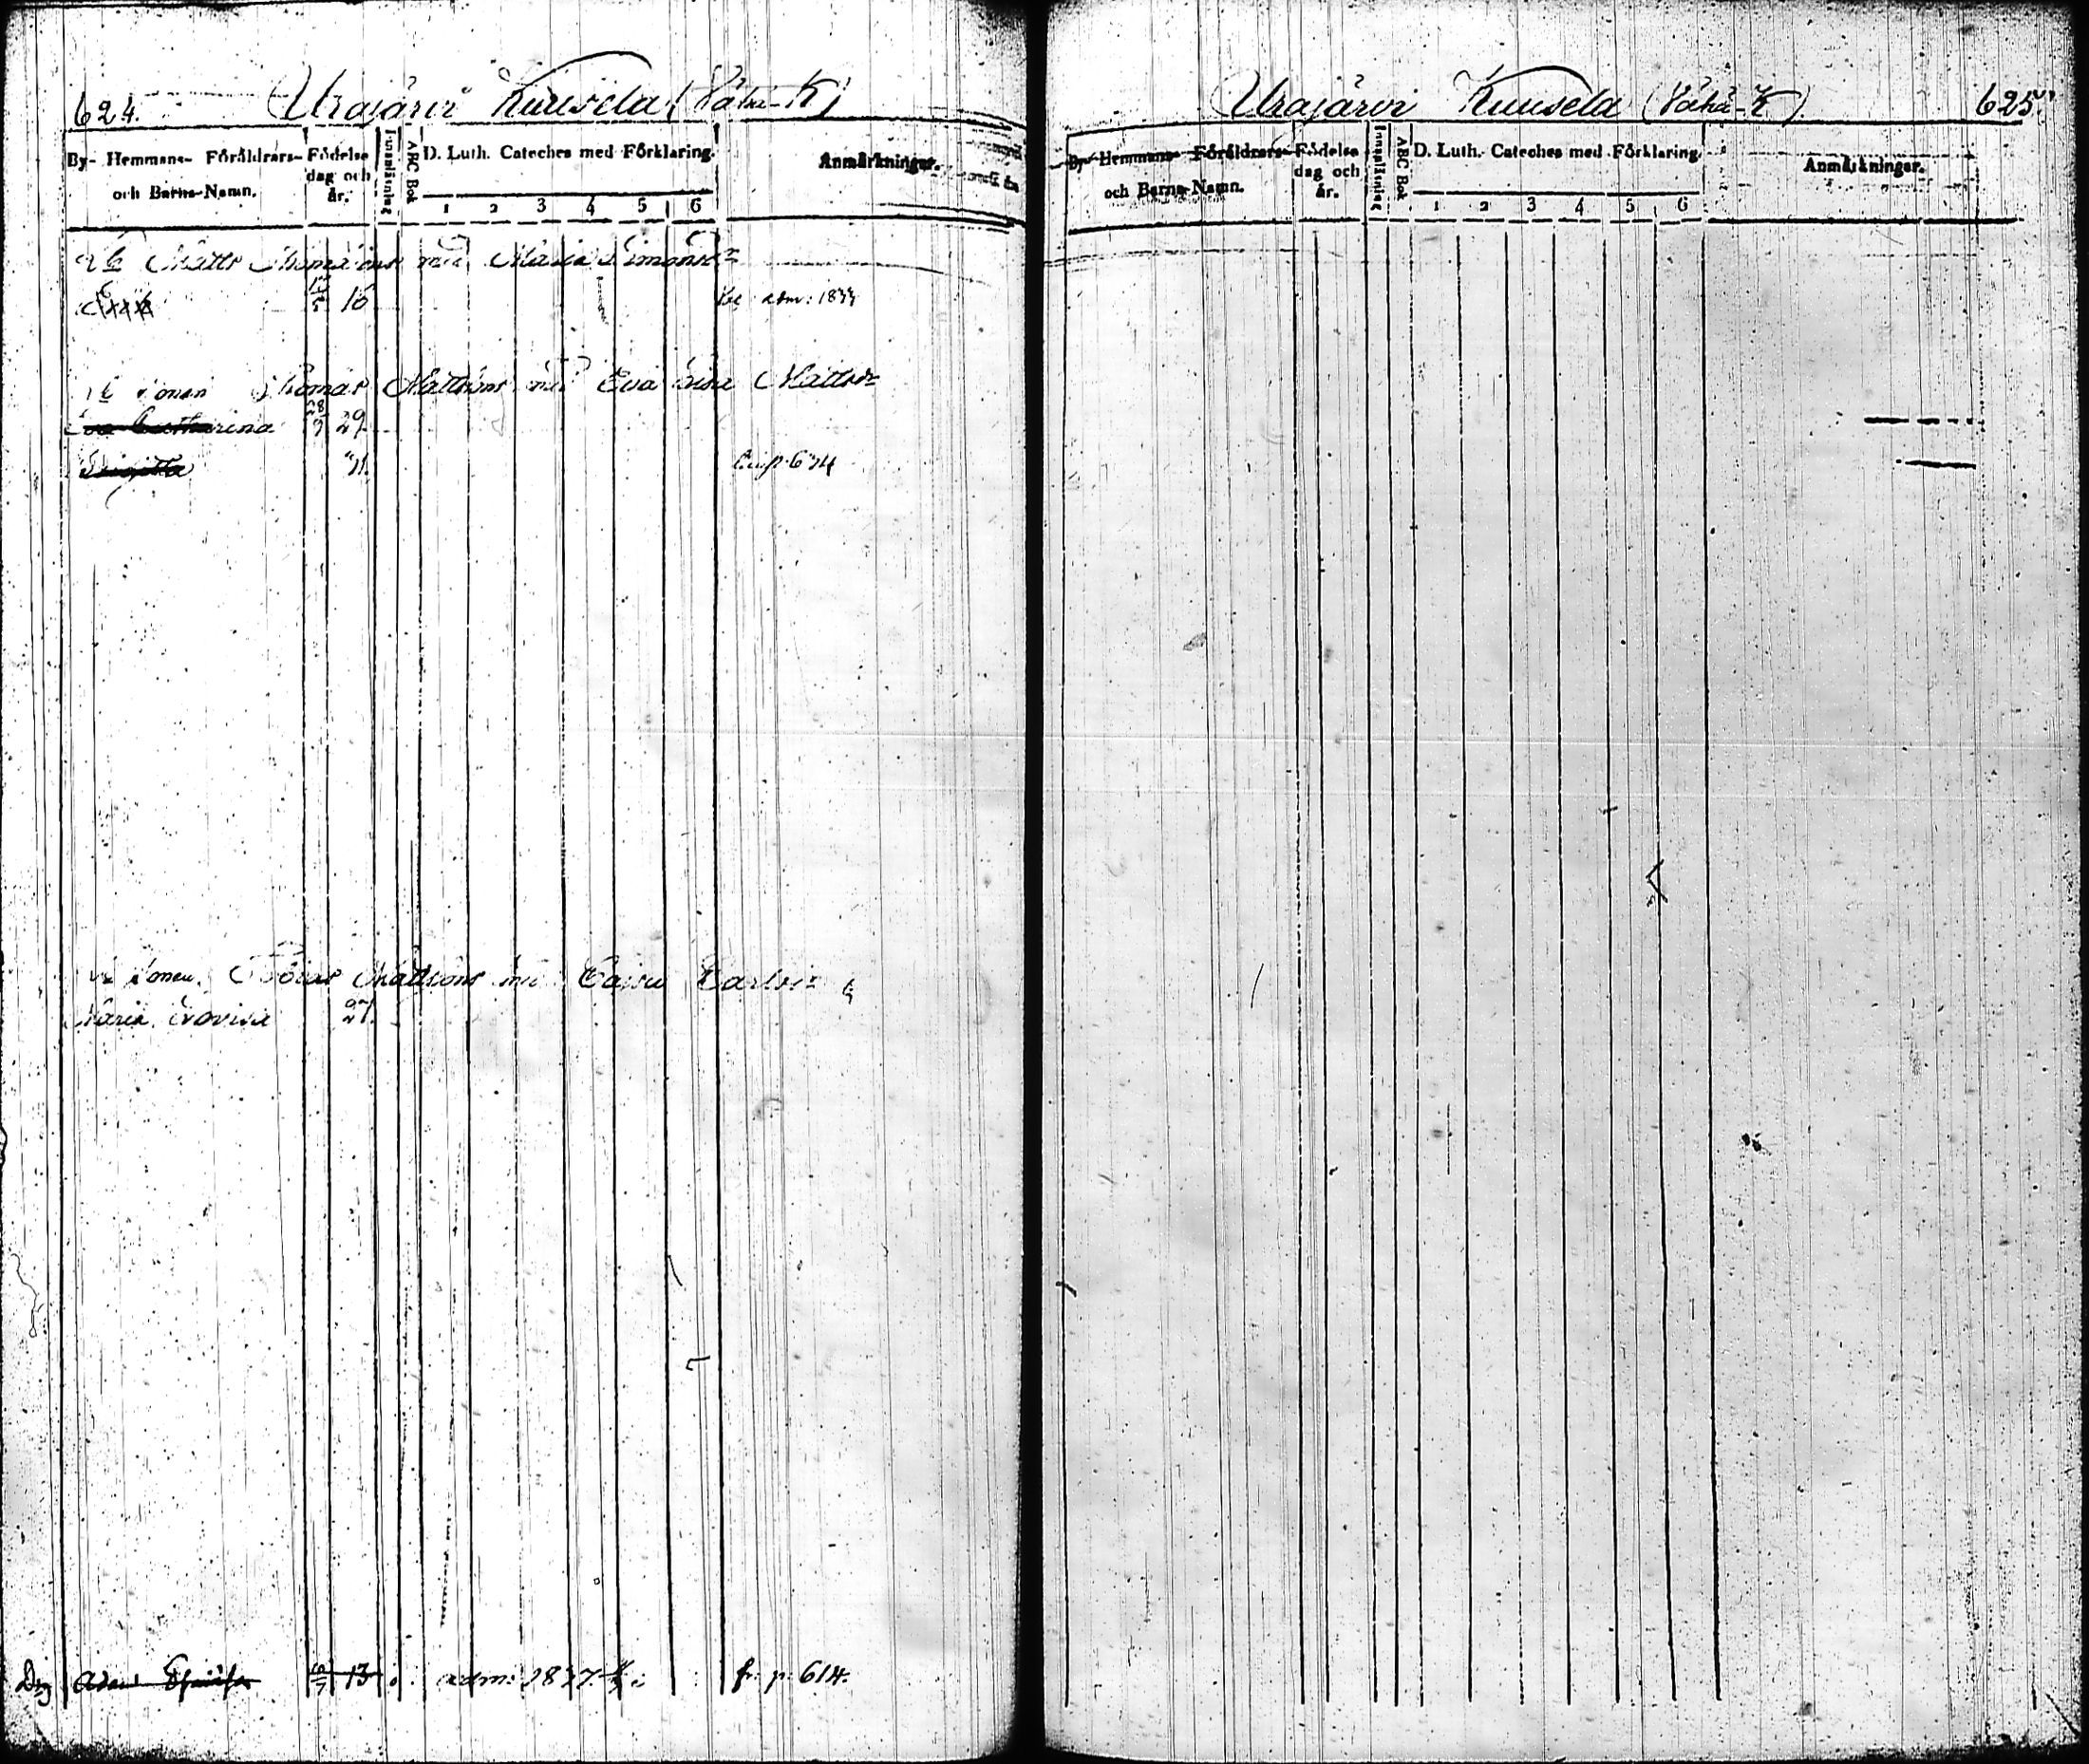 624. Urajärvi Kuusela (Vähä-K)
By- Hemmans- Föräldrars- och Barns-Namn. Födelse dag och år. Innanläsning ABC Bok D. Luth. Cateches med Förklaring. Anmärkningar.
1 2 3 4 5 6
Matts Thomasons med Maria Simonsdr
16 adm: 1833
sonen Thomas Mattsons med Eva Lisa Mattsdr
Eva Catharina 29
Brigitta 31.
sonen Mattsons med Caisa Carlsdr
Maria Lovisa 27.
Drg 13 adm: 1837. fr. p. 614.
Urajärvi Kuusela (Vähä-K). 625.
By- Hemmans- Föräldrars- och Barns-Namn. Födelse dag och år. Innanläsning ABC Bok D. Luth. Cateches med Förklaring. Anmärkningar.
1 2 3 4 5 6